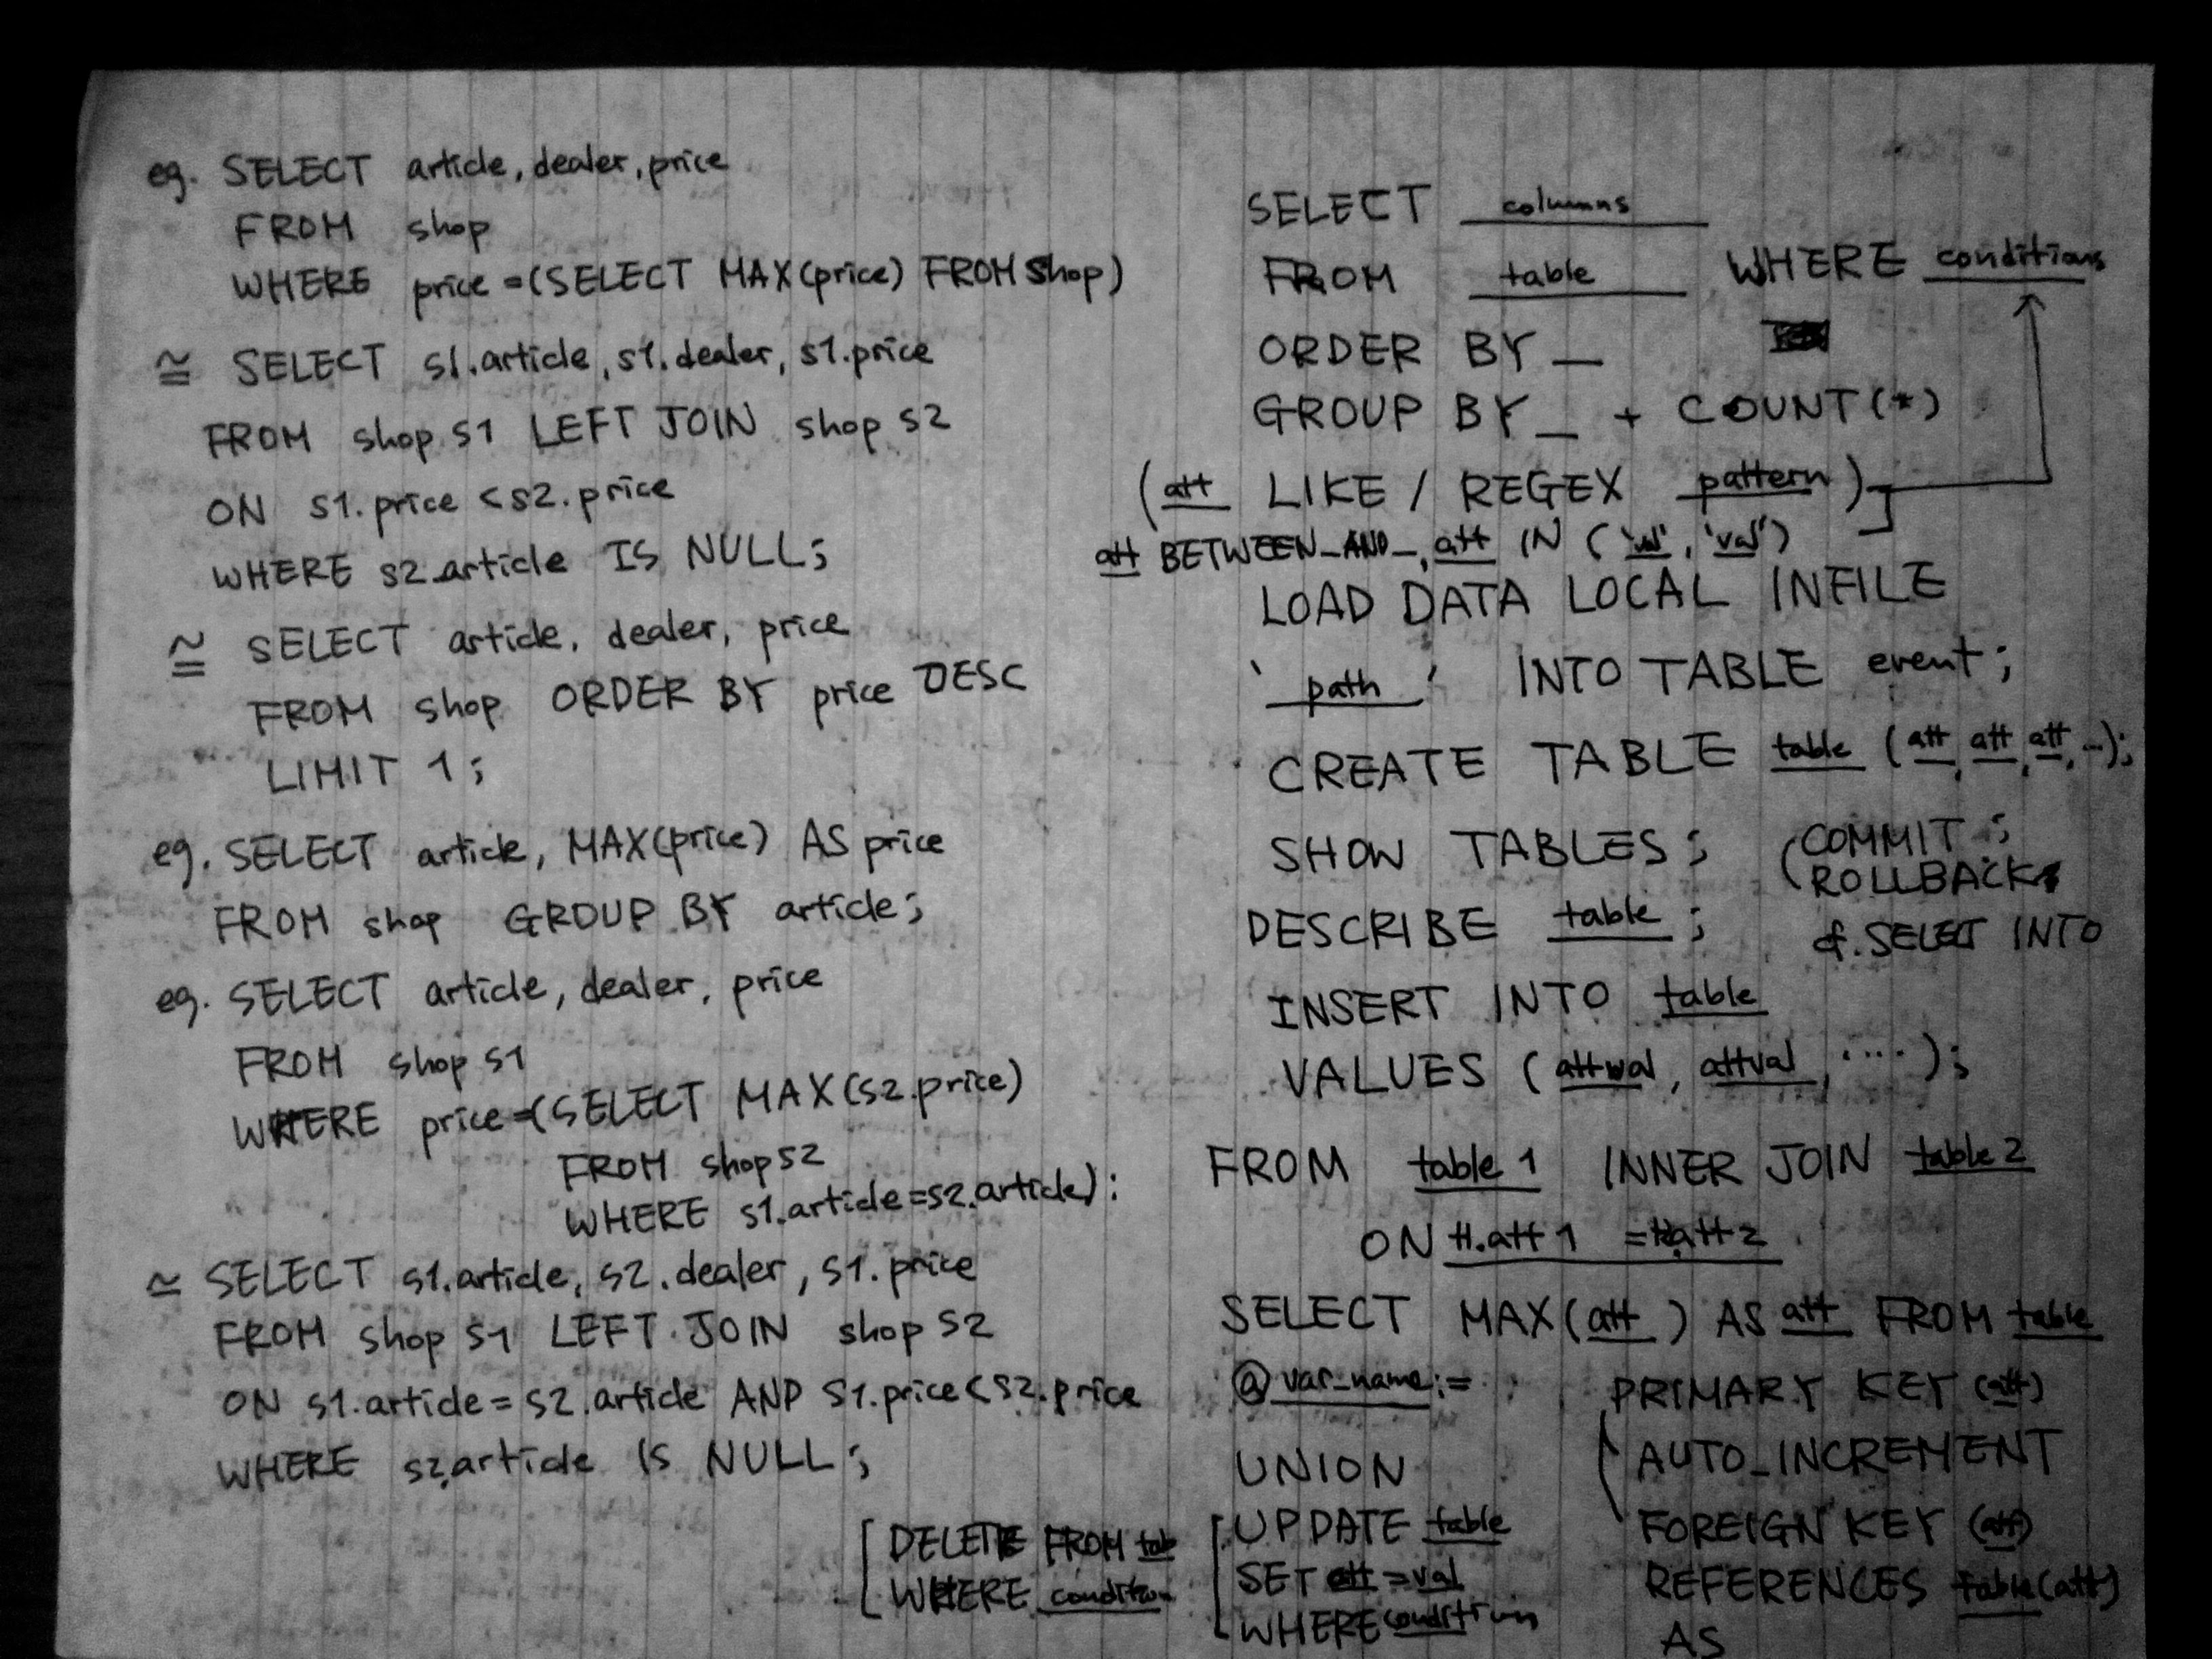 eg. SELECT article, dealer, price
FROM shop
WHERE price =(SELECT MAX(price) FROM shop)
≅ SELECT s1.article, s1.dealer, s1.price
FROM shop s1 LEFT JOIN shop s2
ON s1.price < s2.price
WHERE s2.article IS NULL;
≅ SELECT article, dealer, price
FROM shop ORDER BY price DESC
LIMIT 1;
eg. SELECT article, MAX(price) AS price
FROM shop GROUP BY article;
eg. SELECT article, dealer, price
FROM shop s1
WHERE price=(SELECT MAX(s2.price)
FROM shop s2
WHERE s1.article=s2.article);
≃ SELECT s1.article, s2.dealer, s1.price
FROM shop s1 LEFT JOIN shop s2
ON s1.article = s2.article AND s1.price < s2.price
WHERE s2.article IS NULL;
[DELETE FROM tab
WHERE condition
SELECT columns
FROM table WHERE conditions
ORDER BY _
GROUP BY _ + COUNT(*)
(att LIKE / REGEX pattern)
att BETWEEN _ AND _, att IN ('val', 'val')
LOAD DATA LOCAL INFILE
' path ' INTO TABLE event;
CREATE TABLE table (att, att, att, ...);
SHOW TABLES; (COMMIT;
ROLLBACK;
DESCRIBE table; cf. SELECT INTO
INSERT INTO table
VALUES (attval, attval, ....);
FROM table 1 INNER JOIN table 2
ON t1.att1 = t2.att2
SELECT MAX(att) AS att FROM table
@var_name:= PRIMARY KEY (att)
UNION AUTO_INCREMENT
[UPDATE table FOREIGN KEY (att)
SET att = val REFERENCES table(att)
WHERE condition AS